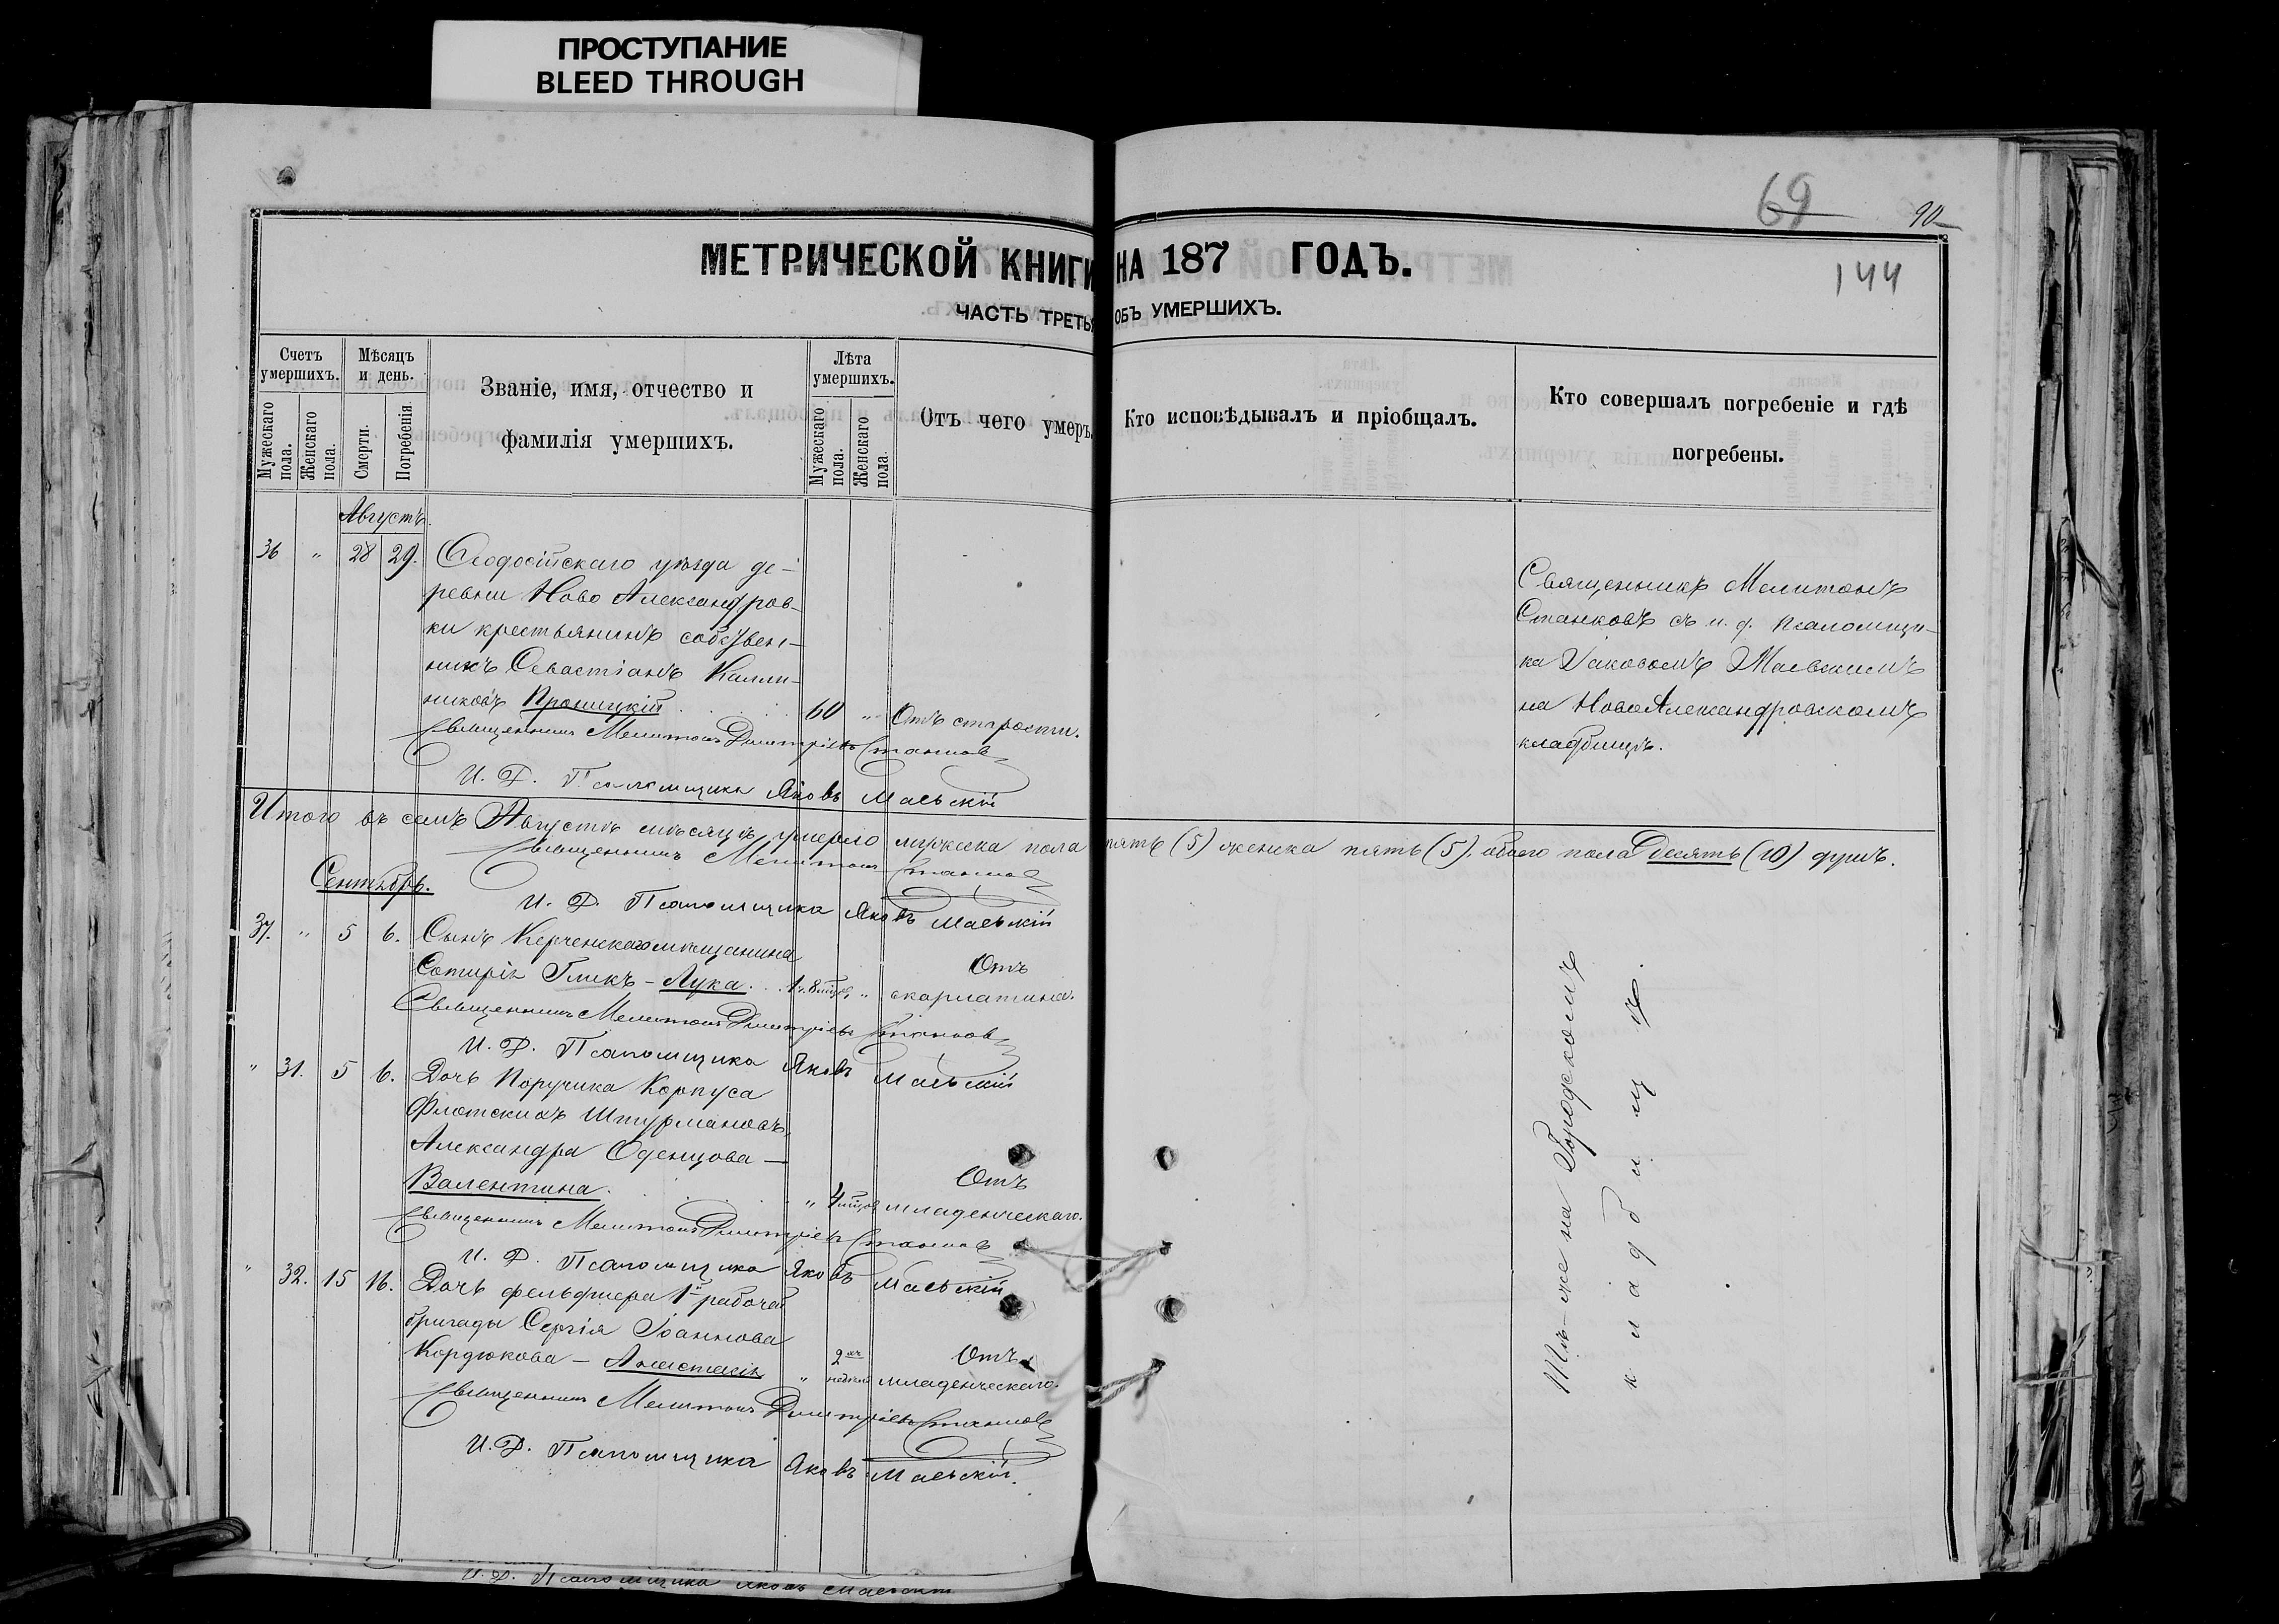 ПРОСТУПАНИЕ
BLEED THROUGH
69
90
144
МЕТРИЧЕСКОЙ КНИГИ НА 187 ГОДЪ.
ЧАСТЬ ТРЕТЬЯ ОБЪ УМЕРШИХЪ.
Счетъ умершихъ.
Мужескаго пола.
Женскаго пола.
Мѣсяцъ и день.
Смерти.
Погребенія
Званіе, имя, отчество и
фамилія умершихъ.
Лѣта умершихъ.
Мужескаго пола.
Женскаго пола.
Отъ чего умеръ.
Кто исповѣдывалъ и пріобщалъ.
Кто совершалъ погребеніе и гдѣ
погребены.
Августъ.
36 " 28 29. Ѳеодосійскаго уѣзда де-
ревни Ново Александров-
ки крестьянинъ собствен-
никъ Севастіанъ Калли-
никовъ Проницкій 60 " Отъ старости.
Священникъ Мелитонъ
Станковъ съ и. д. псаломщи-
ка Іаковомъ Маевскимъ
на НовоАлександровскомъ
кладбищѣ.
Священникъ Мелитонъ Димитріевъ Станковъ
И. Д. Псаломщика Яковъ Маевскій
Итого въ семъ Августѣ мѣсяцѣ умерло мужска пола пять (5) женска пять (5), обоего пола Десять (10) душъ.
Священникъ Мелитонъ Станковъ
И. Д. Псаломщика Яковъ Маевскій
Сентябрь.
37. " 5 6. Сынъ Керченскаго мѣщанина
Сотирія Гликъ - Лука. 1 г. 8 мѣс. " Отъ
скарлатина.
Священникъ Мелитонъ Димитріевъ Станковъ
И. Д. Псаломщика Яковъ Маевскій
" 31. 5 6. Дочь Поручика Корпуса
Флотскихъ Штурмановъ
Александра Оденцова —
Валентина. " 4 мѣсяц. Отъ
младенческаго.
Священникъ Мелитонъ Димитріевъ Станковъ
И. Д. Псаломщика Яковъ Маевскій
" 32. 15 16. Дочь фельдшера 1й рабочей
бригады Сергія Іоаннова
Кордюкова - Анастасія " 2хъ недѣль Отъ
младенческаго.
Священникъ Мелитонъ Димитріевъ Станковъ
И. Д. Псаломщика Яковъ Маевскій.
Тѣ-же на Городскомъ
кладбищѣ.
И. Д. Псаломщика Яковъ Маевскій